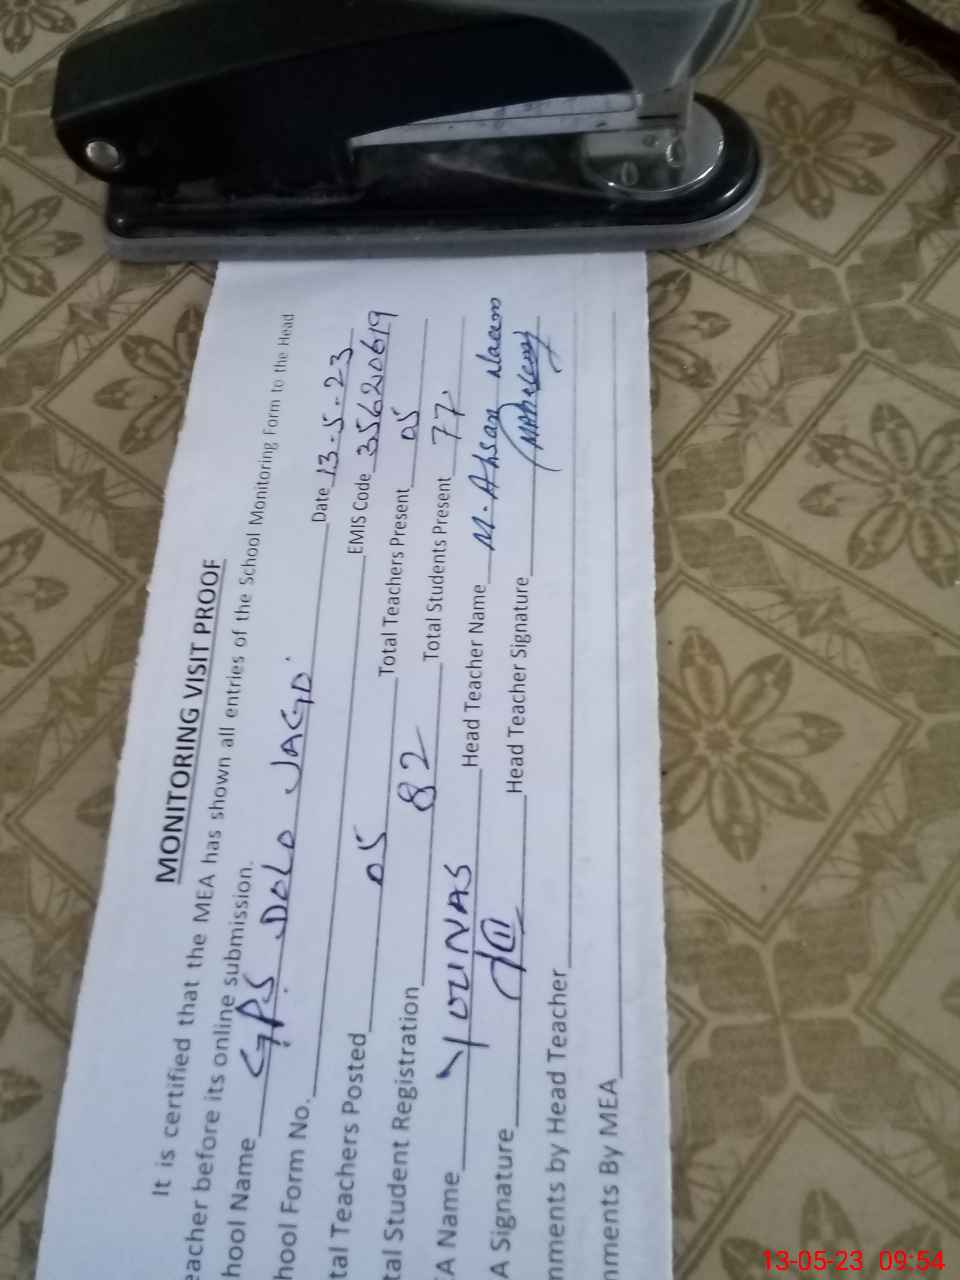 MONITORING VISIT PROOF
It is certified that the MEA has shown all entries of the School Monitoring Form to the Head
eacher before its online submission.
hool Name GPS DOLO JAGD. Date 13-5-23
hool Form No. EMIS Code 35620619
tal Teachers Posted 05 Total Teachers Present 05
tal Student Registration 82 Total Students Present 77
A Name YOUNAS Head Teacher Name M. Ahsan Naeem
A Signature Head Teacher Signature
nments by Head Teacher
nments By MEA
13-05-23 09:54